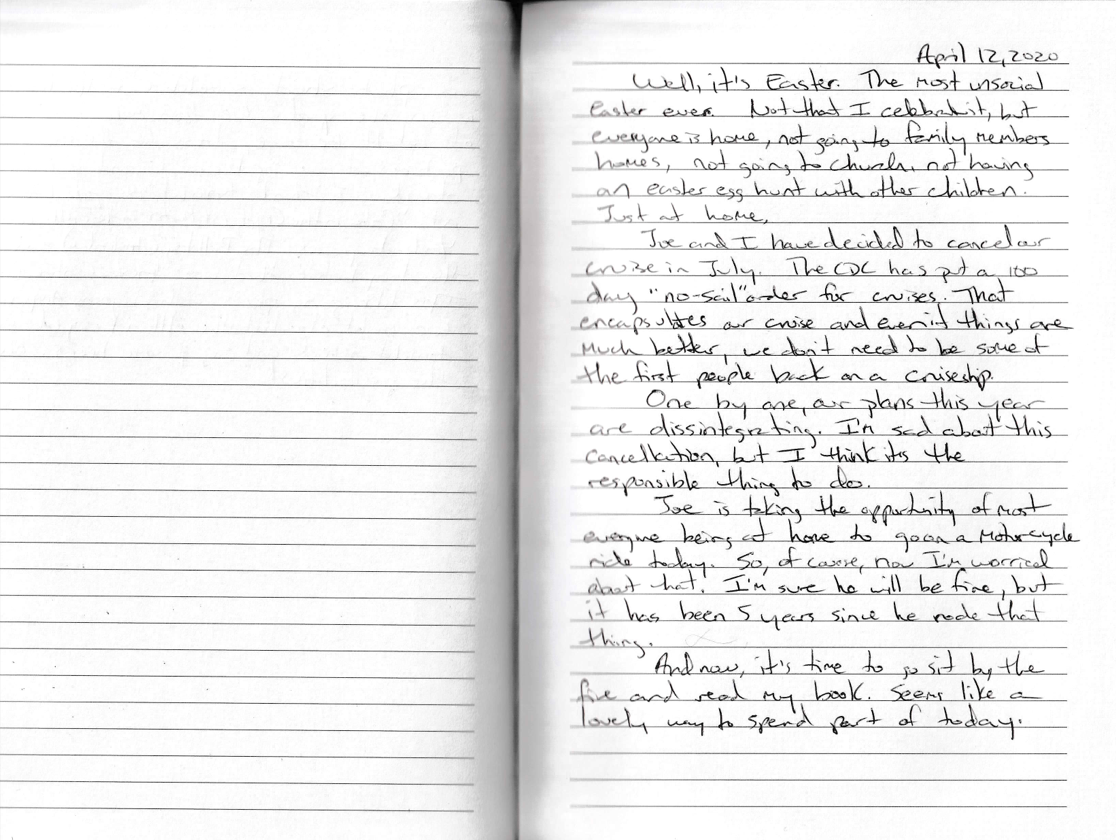 April 12, 2020
Well, it's Easter. The most unsocial
Easter ever. Not that I celebrate it, but
everyone is home, not going to family members
homes, not going to church, not having
an easter egg hunt with other children.
Just at home.
Joe and I have decided to cancel our
cruise in July. The CDC has put a 100
day "no-sail" order for cruises. That
encapsulates our cruise and even if things are
much better, we don't need to be some of
the first people back on a cruiseship.
One by one, our plans this year
are dissintegrating. I'm sad about this
cancellation, but I think its the
responsible thing to do.
Joe is taking the opportunity of most
everyone being at home to go on a motorcycle
ride today. So, of course, now I'm worried
about that. I'm sure he will be fine, but
it has been 5 years since he rode that
thing.
And now, it's time to go sit by the
fire and read my book. Seems like a
lovely way to spend part of today.